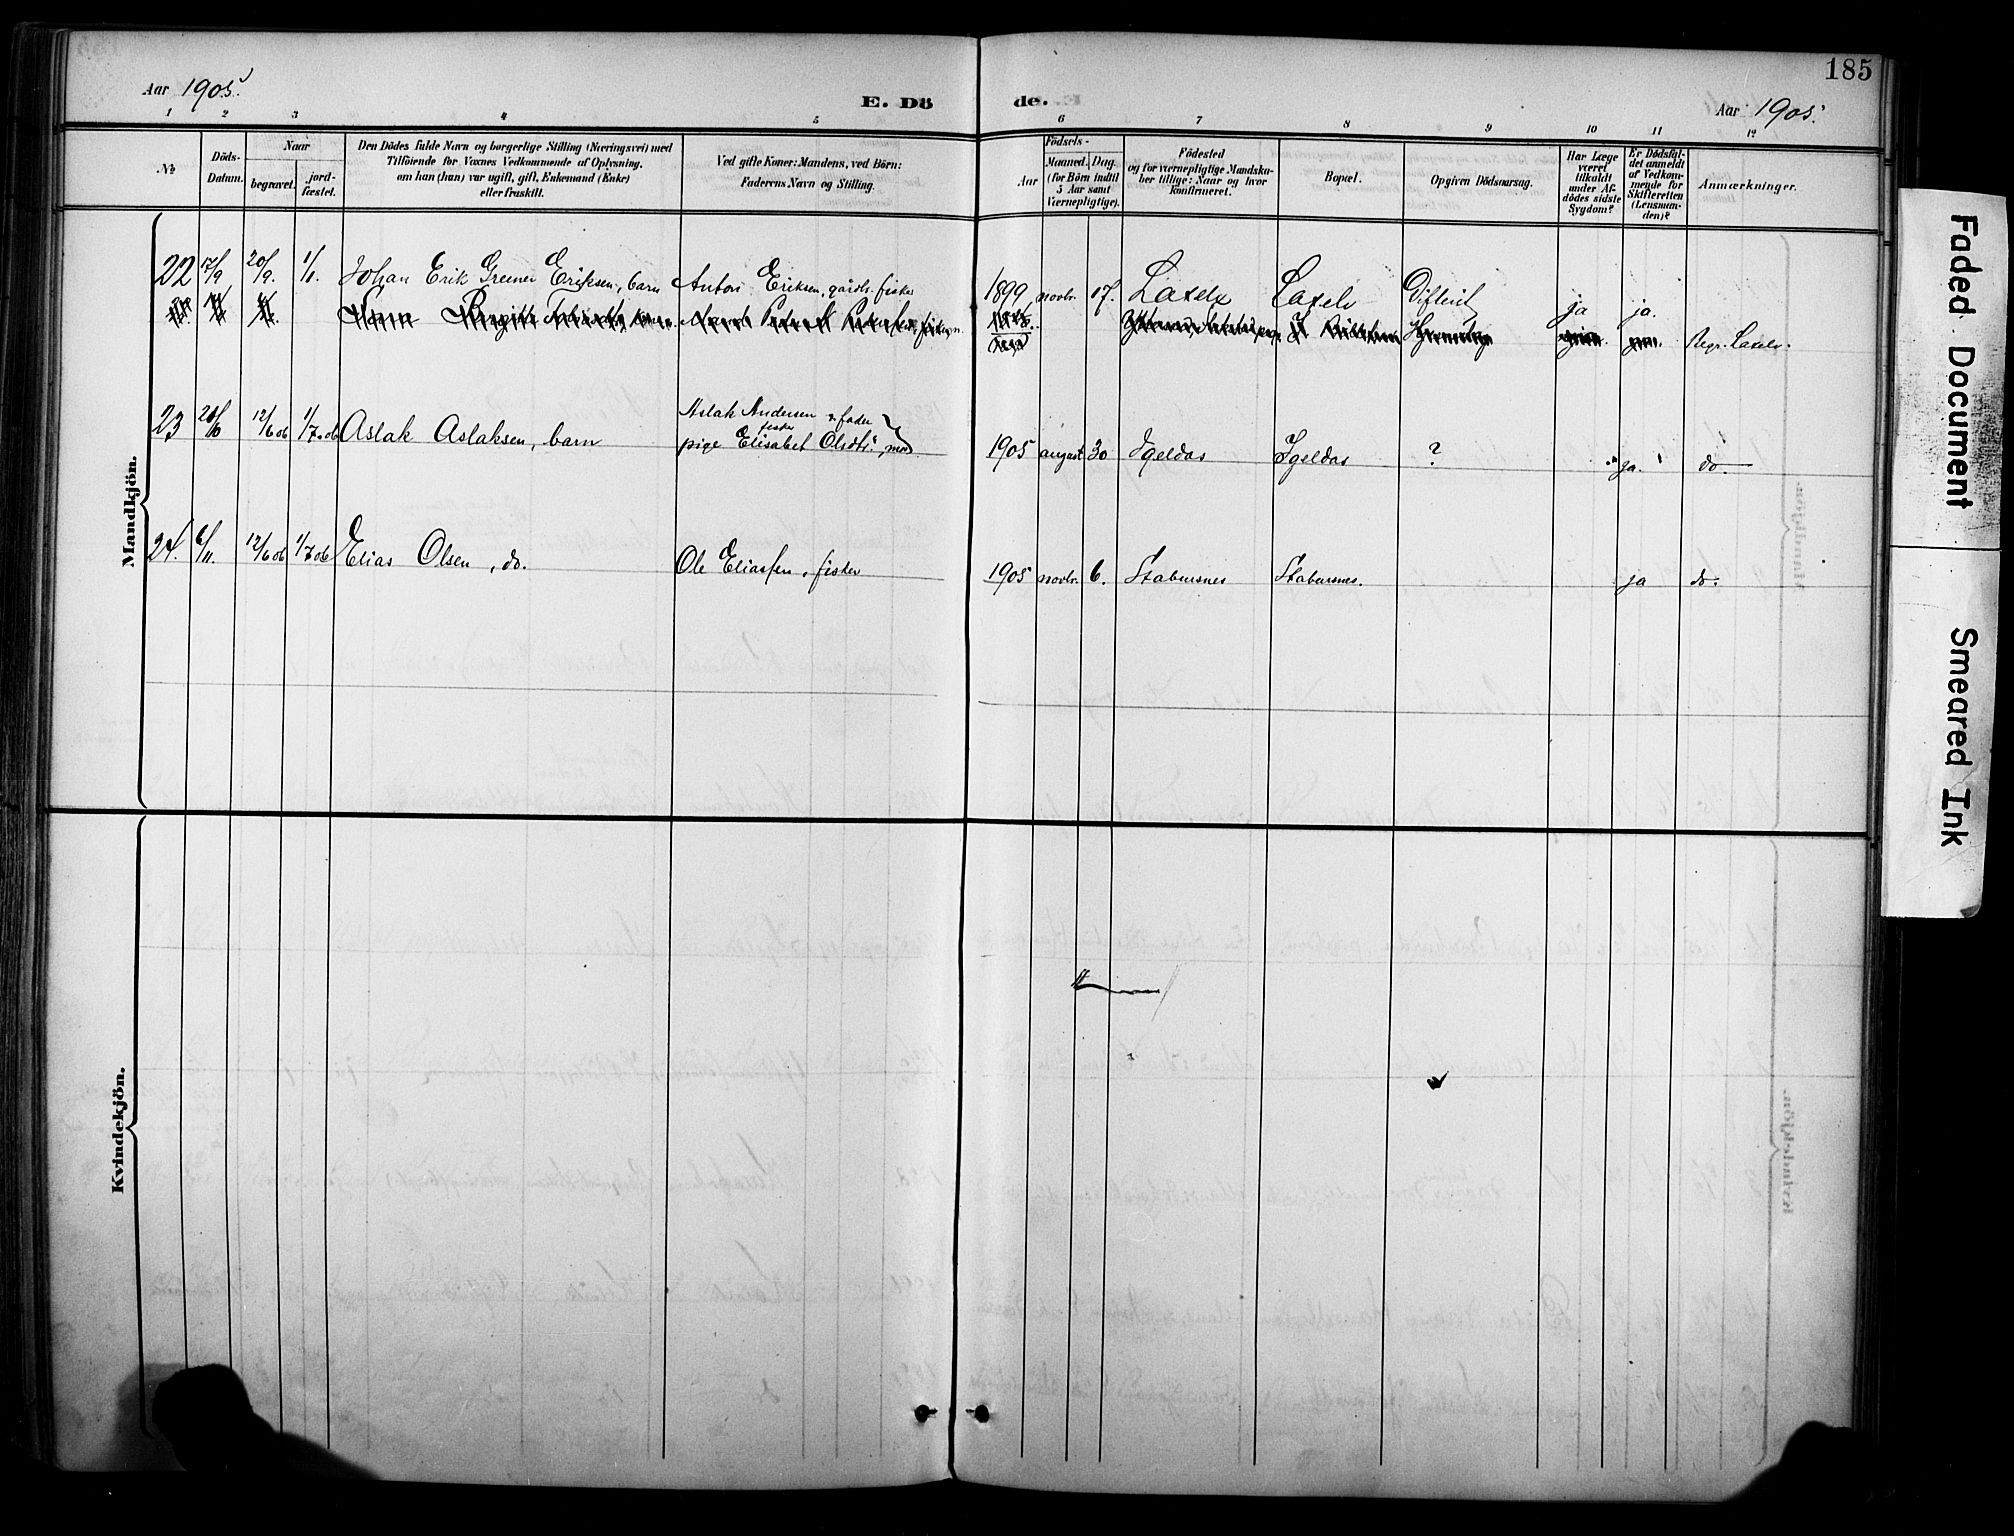 Aar 1905.
E. Dö
de.
185
Aar 1905.
1 2 3 4 5 6 7 8 9 10 11 12
No
Döds-
Datum.
Naar
begravet.
jord-
fæstet.
Den Dödes fulde Navn og borgerlige Stilling (Næringsvei) med
Tilföiende for Voxnes Vedkommende af Oplysning,
om han (hun) var ugift, gift, Enkemand (Enke)
eller fraskilt.
Ved gifte Koner: Mandens, ved Börn:
Faderens Navn og Stilling.
Födsels-
Aar
Maaned. Dag.
(for Börn indtil
5 Aar samt
Værnepligtige).
Födested
og for værnepligtige Mandska-
ber tillige: Naar og hvor
konfirmeret.
Bopæl.
Opgiven Dödsaarsag.
Har Læge
været
tilkaldt
under Af-
dödes sidste
Sygdom?
Er Dödsfal-
det anmeldt
af Vedkom-
mende for
Skifteretten
(Lensman-
den)?
Anmærkninger.
Mandkjön.
22 17/9 20/9. 1/1. Johan Erik Greiner Eriksen, barn Anton Eriksen, gårdbr. fisker 1899 novbr. 17. Laxelv Laxelv Difterit ja ja.
Begr. Laxelv.
23 12/6 06 1/7. 06 Aslak Aslaksen, barn
Aslak Andersen fader
fisker
pige Elisabet Olsdtr., mod
1905 august 30 Igeldas Igeldas ? ja. do.
24. 6/11. 12/6 06 1/7 06 Elias Olsen, do. Ole Eliassen, fisker 1905 novbr. 6. Stabursnes Stabursnes. ja do.
Kvindekjön.
Faded Document
Smeared Ink